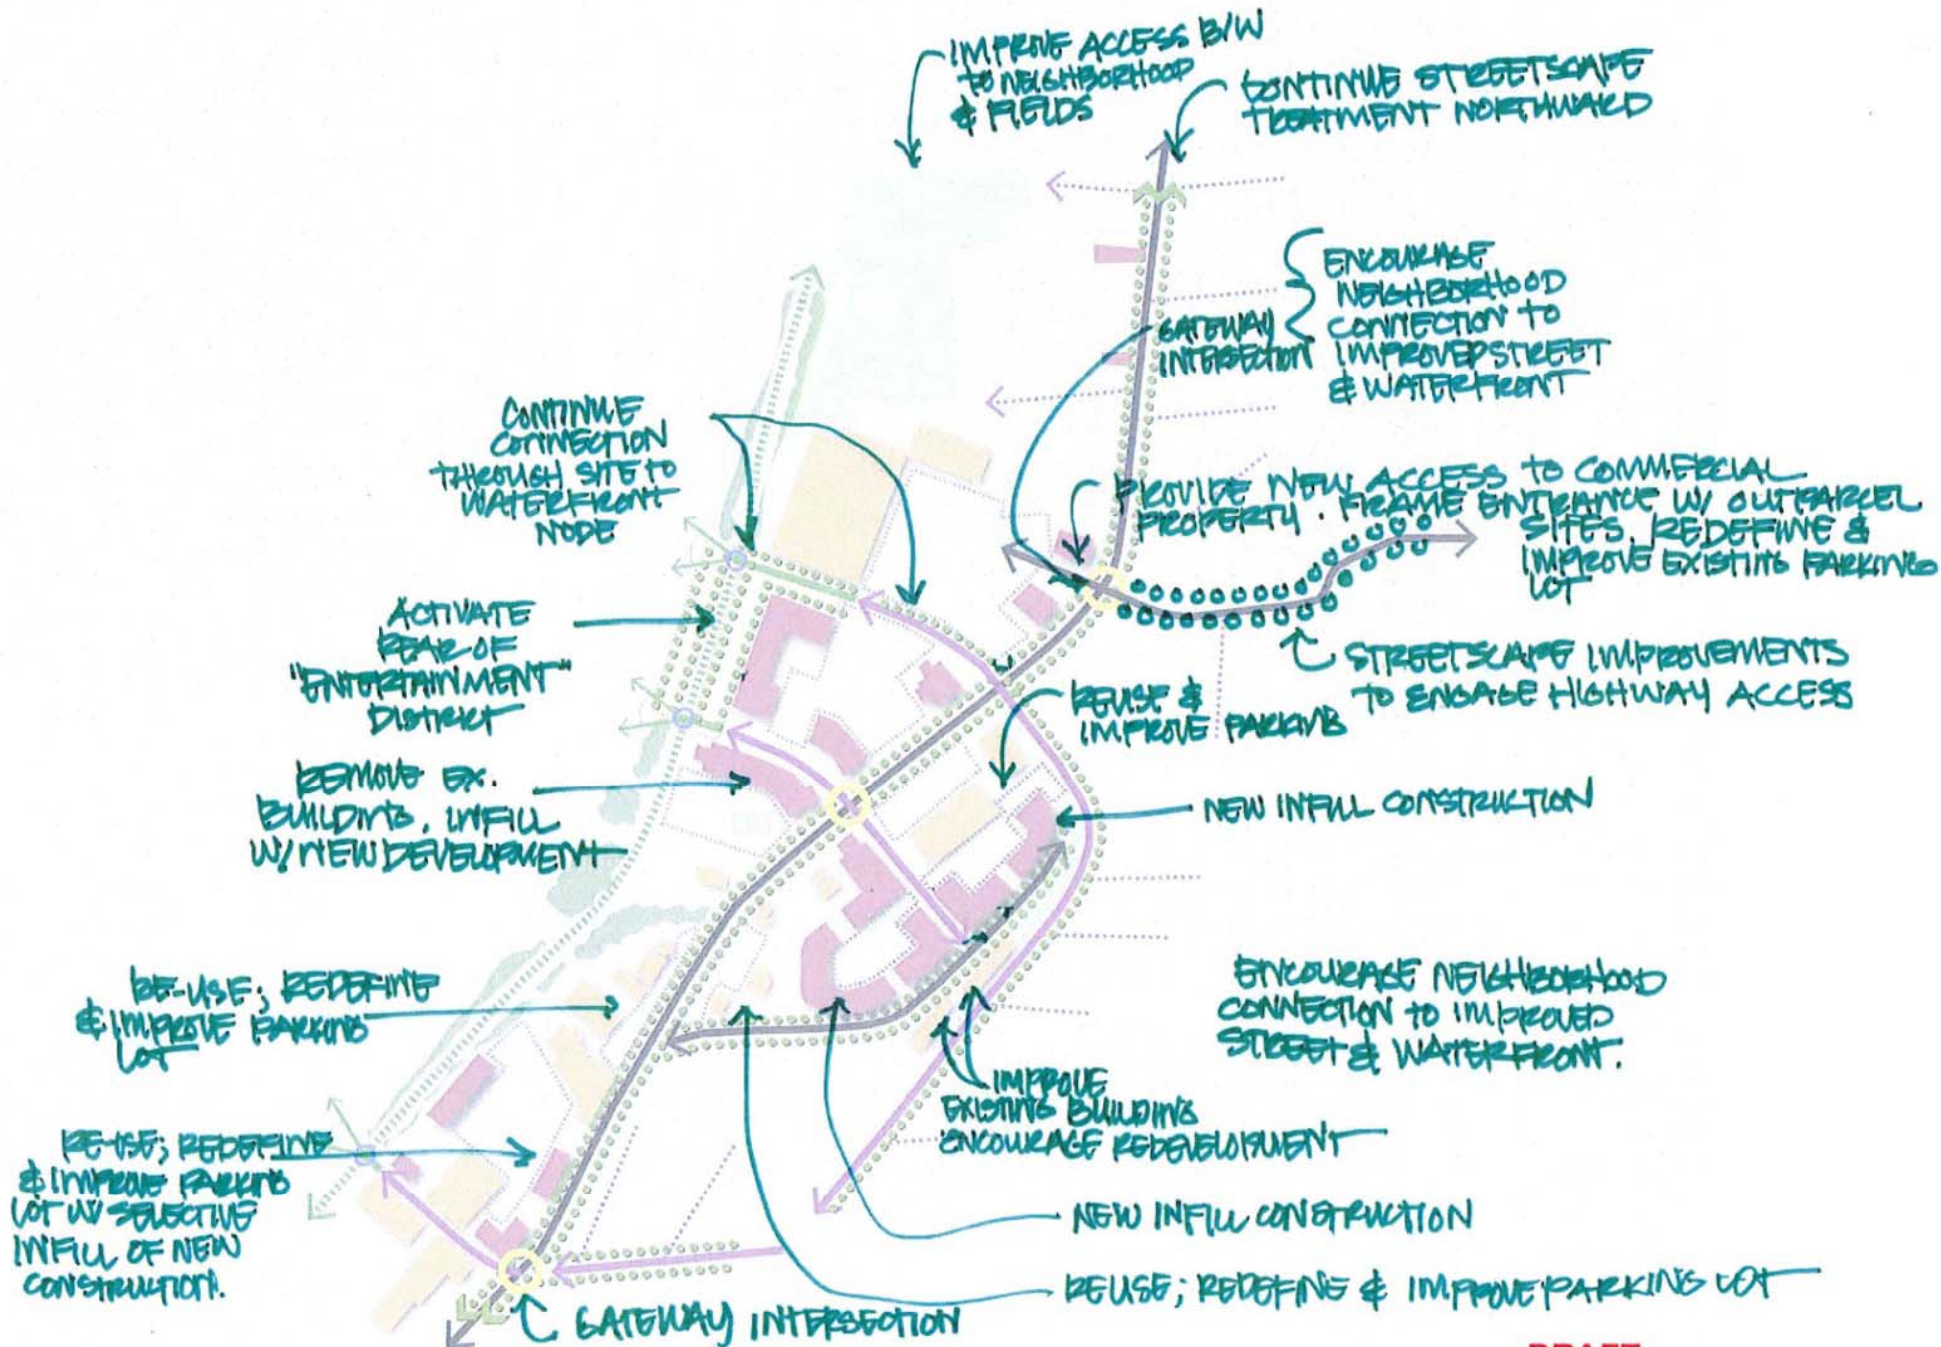 IMPROVE ACCESS B/W
TO NEIGHBORHOOD
& FIELDS
CONTINUE STREETSCAPE
TREATMENT NORTHWARD
ENCOURAGE
NEIGHBORHOOD
CONNECTION TO
IMPROVED STREET
& WATERFRONT
GATEWAY
INTERSECTION
CONTINUE
CONNECTION
THROUGH SITE TO
WATERFRONT
NODE
PROVIDE NEW ACCESS TO COMMERCIAL
PROPERTY. FRAME ENTRANCE W/ OUTPARCEL
SITES. REDEFINE &
IMPROVE EXISTING PARKING
LOT
ACTIVATE
REAR OF
"ENTERTAINMENT"
DISTRICT
STREETSCAPE IMPROVEMENTS
TO ENGAGE HIGHWAY ACCESS
REUSE &
IMPROVE PARKING
REMOVE EX.
BUILDING, INFILL
W/ NEW DEVELOPMENT
NEW INFILL CONSTRUCTION
RE-USE; REDEFINE
& IMPROVE PARKING
LOT
ENCOURAGE NEIGHBORHOOD
CONNECTION TO IMPROVED
STREET & WATERFRONT.
IMPROVE
EXISTING BUILDING
ENCOURAGE REDEVELOPMENT
RE-USE; REDEFINE
& IMPROVE PARKING
LOT W/ SELECTIVE
INFILL OF NEW
CONSTRUCTION.
NEW INFILL CONSTRUCTION
REUSE; REDEFINE & IMPROVE PARKING LOT
GATEWAY INTERSECTION